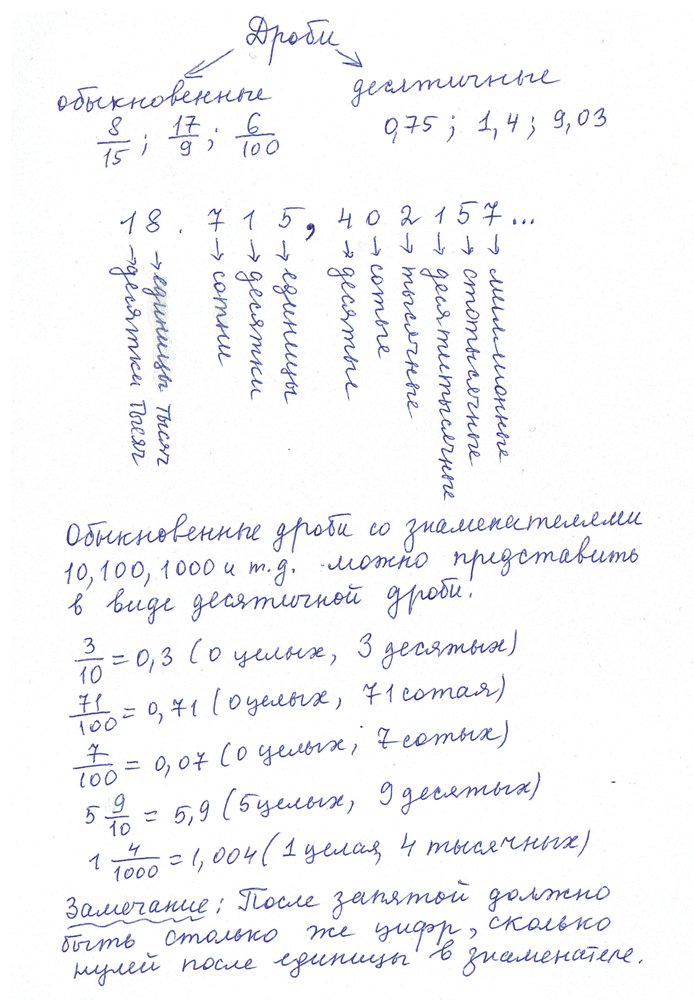 Дроби
обыкновенные десятичные
8/15 ; 17/9 ; 6/100 0,75 ; 1,4 ; 9,03
18.715,402157...
→ десятки тысяч
→ единицы тысяч
→ сотни
→ десятки
→ единицы
→ десятые
→ сотые
→ тысячные
→ десятитысячные
→ стотысячные
→ миллионные
Обыкновенные дроби со знаменателями
10, 100, 1000 и т.д. можно представить
в виде десятичной дроби.
3/10 = 0,3 (0 целых, 3 десятых)
71/100 = 0,71 (0 целых, 71 сотая)
7/100 = 0,07 (0 целых, 7 сотых)
5 9/10 = 5,9 (5 целых, 9 десятых)
1 4/1000 = 1,004 (1 целая, 4 тысячных)
Замечание: После запятой должно
быть столько же цифр, сколько
нулей после единицы в знаменателе.